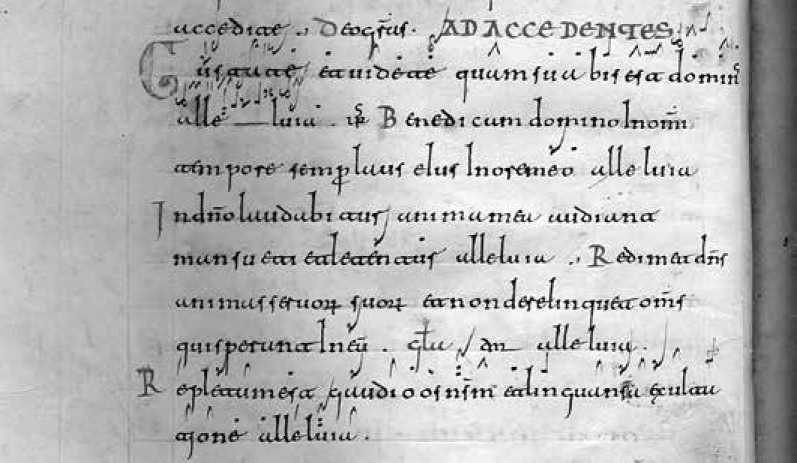 accedite . Deogr̄as . AD ACCEDENTES
Gustate et videte quam suavis est domin̄
alle — luia . Benedicam domino In om̄i
tempore semp laus eius In ore meo alleluia
In dn̄o laudabitur anima mea audiant
mansueti et letentur alleluia . Redimet dn̄s
animas servoꝝ suoꝝ et non derelinquet om̄s
qui sperant In eū . gła an alleluia .
Repletum est gaudio os n̄sm et lingua nr̄a exulta
tione alleluia .